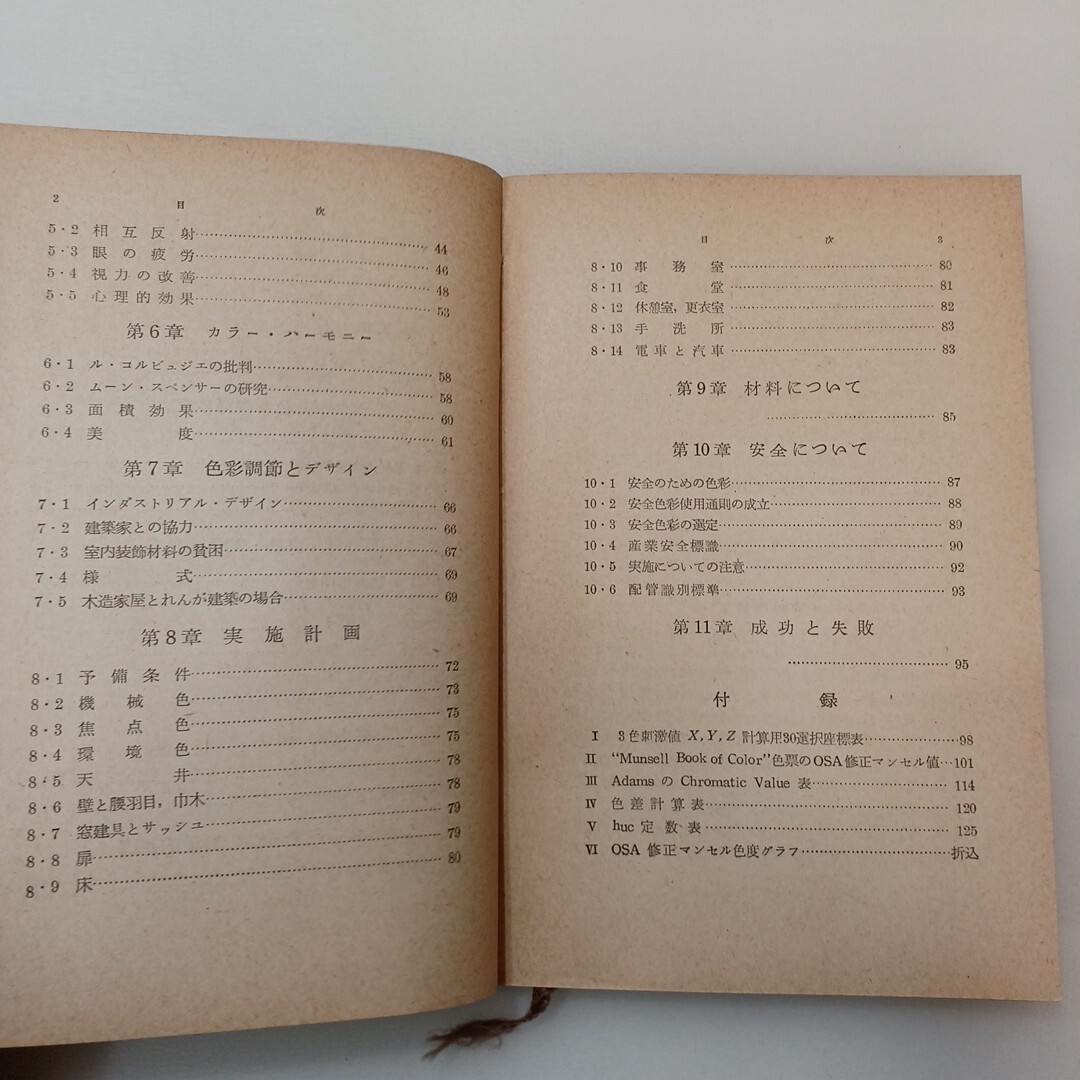 2 目次
5・2 相互反射 44
5・3 眼の疲労 46
5・4 視力の改善 48
5・5 心理的効果 53
第6章 カラー・ハーモニー
6・1 ル・コルビュジエの批判 58
6・2 ムーン・スペンサーの研究 58
6・3 面積効果 60
6・4 美度 61
第7章 色彩調節とデザイン
7・1 インダストリアル・デザイン 66
7・2 建築家との協力 66
7・3 室内装飾材料の貧困 67
7・4 様式 69
7・5 木造家屋とれんが建築の場合 69
第8章 実施計画
8・1 予備条件 72
8・2 機械色 73
8・3 焦点色 75
8・4 環境色 75
8・5 天井 78
8・6 壁と腰羽目，巾木 78
8・7 窓建具とサッシュ 79
8・8 扉 79
8・9 床 80
目次 3
8・10 事務室 80
8・11 食堂 81
8・12 休憩室，更衣室 82
8・13 手洗所 83
8・14 電車と汽車 83
第9章 材料について
85
第10章 安全について
10・1 安全のための色彩 87
10・2 安全色彩使用通則の成立 88
10・3 安全色彩の選定 89
10・4 産業安全標識 90
10・5 実施についての注意 92
10・6 配管識別標準 93
第11章 成功と失敗
95
付録
I 3色刺激値 X, Y, Z 計算用30選択座標表 98
II “Munsell Book of Color”色票のOSA修正マンセル値 101
III Adams の Chromatic Value 表 114
IV 色差計算表 120
V huc 定数表 125
VI OSA 修正マンセル色度グラフ 折込